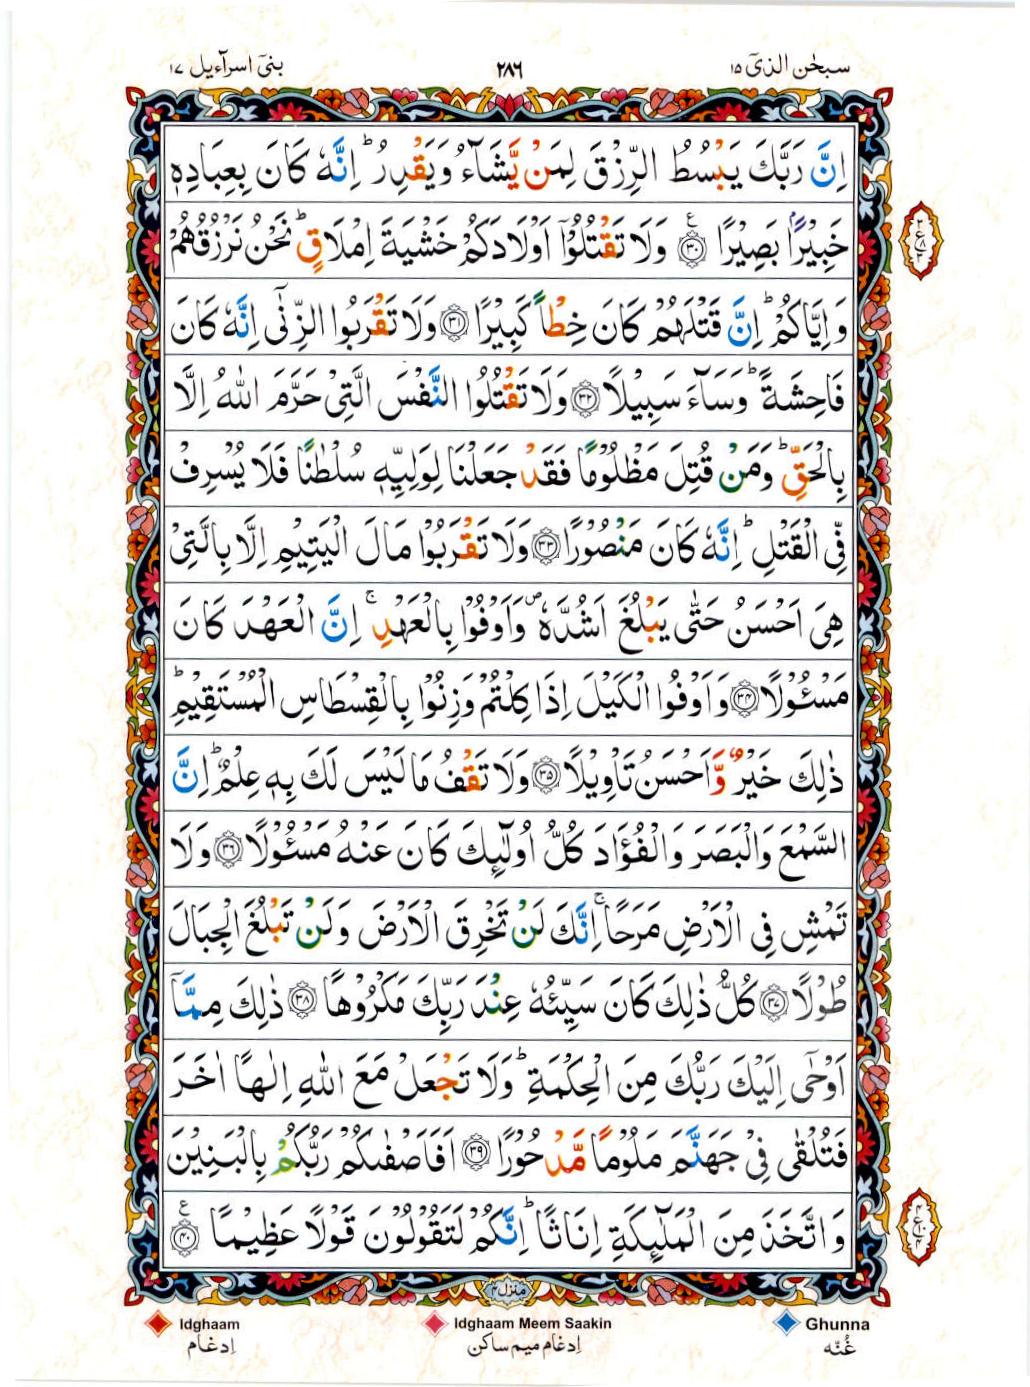 سبحٰن الذیٓ ۱۵
۲۸۶
بنیٓ اسرآءیل ۱۷
اِنَّ رَبَّكَ يَبْسُطُ الرِّزْقَ لِمَنْ يَّشَآءُ وَيَقْدِرُ ؕ اِنَّهٗ كَانَ بِعِبَادِهٖ
خَبِيْرًۢا بَصِيْرًا ۝۳۰ ع وَلَا تَقْتُلُوْۤا اَوْلَادَكُمْ خَشْيَةَ اِمْلَاقٍ ؕ نَحْنُ نَرْزُقُهُمْ
وَاِيَّاكُمْ ؕ اِنَّ قَتْلَهُمْ كَانَ خِطْاً كَبِيْرًا ۝۳۱ وَلَا تَقْرَبُوا الزِّنٰۤى اِنَّهٗ كَانَ
فَاحِشَةً ؕ وَسَآءَ سَبِيْلًا ۝۳۲ وَلَا تَقْتُلُوا النَّفْسَ الَّتِيْ حَرَّمَ اللّٰهُ اِلَّا
بِالْحَقِّ ؕ وَمَنْ قُتِلَ مَظْلُوْمًا فَقَدْ جَعَلْنَا لِوَلِيِّهٖ سُلْطٰنًا فَلَا يُسْرِفْ
فِّي الْقَتْلِ ؕ اِنَّهٗ كَانَ مَنْصُوْرًا ۝۳۳ وَلَا تَقْرَبُوْا مَالَ الْيَتِيْمِ اِلَّا بِالَّتِيْ
هِيَ اَحْسَنُ حَتّٰى يَبْلُغَ اَشُدَّهٗ ۪ وَاَوْفُوْا بِالْعَهْدِ ۚ اِنَّ الْعَهْدَ كَانَ
مَسْـُٔوْلًا ۝۳۴ وَاَوْفُوا الْكَيْلَ اِذَا كِلْتُمْ وَزِنُوْا بِالْقِسْطَاسِ الْمُسْتَقِيْمِ ؕ
ذٰلِكَ خَيْرٌ وَّاَحْسَنُ تَاْوِيْلًا ۝۳۵ وَلَا تَقْفُ مَا لَيْسَ لَكَ بِهٖ عِلْمٌ ؕ اِنَّ
السَّمْعَ وَالْبَصَرَ وَالْفُؤَادَ كُلُّ اُولٰٓئِكَ كَانَ عَنْهُ مَسْـُٔوْلًا ۝۳۶ وَلَا
تَمْشِ فِي الْاَرْضِ مَرَحًا ۚ اِنَّكَ لَنْ تَخْرِقَ الْاَرْضَ وَلَنْ تَبْلُغَ الْجِبَالَ
طُوْلًا ۝۳۷ كُلُّ ذٰلِكَ كَانَ سَيِّئُهٗ عِنْدَ رَبِّكَ مَكْرُوْهًا ۝۳۸ ذٰلِكَ مِمَّاۤ
اَوْحٰۤى اِلَيْكَ رَبُّكَ مِنَ الْحِكْمَةِ ؕ وَلَا تَجْعَلْ مَعَ اللّٰهِ اِلٰهًا اٰخَرَ
فَتُلْقٰى فِيْ جَهَنَّمَ مَلُوْمًا مَّدْحُوْرًا ۝۳۹ اَفَاَصْفٰىكُمْ رَبُّكُمْ بِالْبَنِيْنَ
وَاتَّخَذَ مِنَ الْمَلٰٓئِكَةِ اِنَاثًا ؕ اِنَّكُمْ لَتَقُوْلُوْنَ قَوْلًا عَظِيْمًا ۝۴۰ ع
منزل ۴
Idghaam Idghaam Meem Saakin Ghunna
اِدغام اِدغام میم ساکن غُنّه